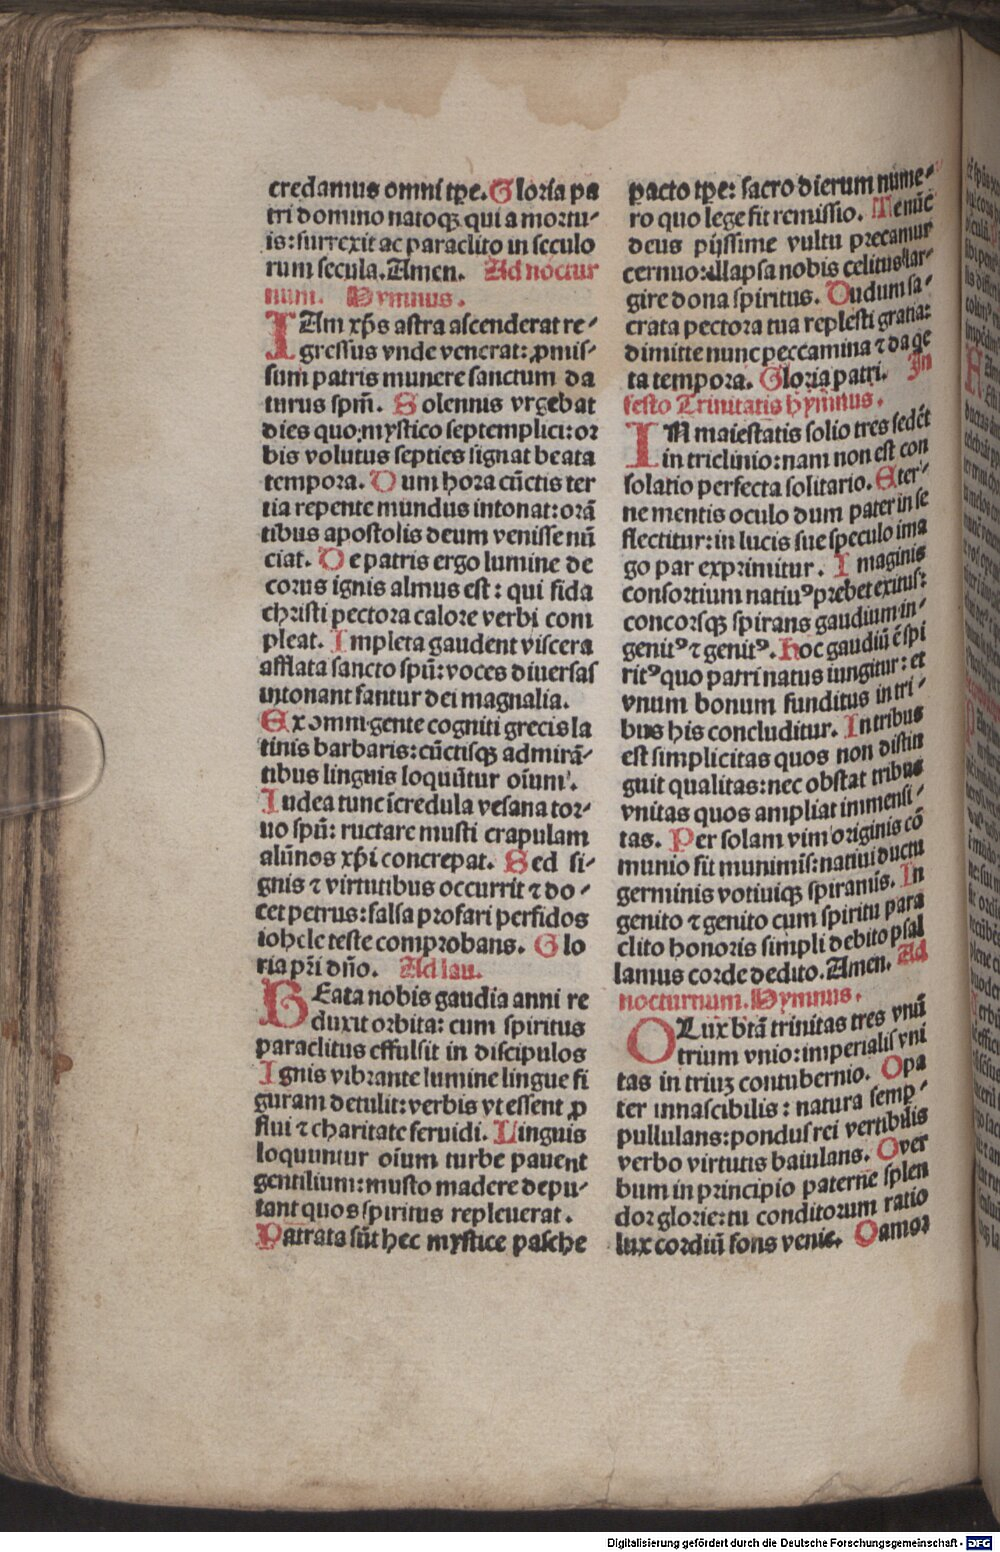 credamus omni tp̄e. Gloria pa
tri domino natoqꝫ qui a mortu-
is: surrexit ac paraclito in seculo
rum secula. Amen. Ad noctur
num. Hymnus.
IAm xp̄s astra ascenderat re-
gressus vnde venerat: ꝓmis-
sum patris munere sanctum da
turus spm̄. Solennis vrgebat
dies quo: mystico septemplici: or
bis volutus septies signat beata
tempora. Dum hora cūctis ter
tia repente mundus intonat: orā
tibus apostolis deum venisse nū
ciat. De patris ergo lumine de
corus ignis almus est: qui fida
christi pectora calore verbi com
pleat. Impleta gaudent viscera
afflata sancto spū: voces diuersas
intonant fantur dei magnalia.
Ex omni gente cogniti grecis la
tinis barbaris: cūctisqꝫ admirā-
tibus linguis loquūtur oīum.
Iudea tunc īcredula vesana tor-
uo spū: ructare musti crapulam
alūnos xp̄i concrepat. Sed si-
gnis ⁊ virtutibus occurrit ⁊ do-
cet petrus: falsa profari perfidos
iohele teste comprobans. Glo
ria pr̄i dn̄o. Ad lau.
BEata nobis gaudia anni re
duxit orbita: cum spiritus
paraclitus effulsit in discipulos
Ignis vibrante lumine lingue fi
guram detulit: verbis vt essent ꝓ
flui ⁊ charitate feruidi. Linguis
loquuntur oīum turbe pauent
gentilium: musto madere depu-
tant quos spiritus repleuerat.
Patrata sūt hec mystice pasche
pacto tp̄e: sacro dierum nume-
ro quo lege fit remissio. Te nūc
deus pijssime vultu precamur
cernuo: illapsa nobis celitus lar-
gire dona spiritus. Dudum sa-
crata pectora tua replesti gratia:
dimitte nunc peccamina ⁊ da qe
ta tempora. Gloria patri. In
festo Trinitatis hym̄nus.
IN maiestatis solio tres sedēt
in triclinio: nam non est con
solatio perfecta solitario. Eter-
ne mentis oculo dum pater in se
flectitur: in lucis sue speculo ima
go par exprimitur. Imaginis
consortium natiuꝰ prebet exitus:
concorsqꝫ spirans gaudium in-
genitꝰ ⁊ genitꝰ. Hoc gaudiū ē spi
ritꝰ quo patri natus iungitur: et
vnum bonum funditus in tri-
bus his concluditur. In tribus
est simplicitas quos non distin
guit qualitas: nec obstat tribus
vnitas quos ampliat immensi-
tas. Per solam vim originis cō
munio fit muniminis: natiui ductu
germinis votiuiqꝫ spiraminis. In
genito ⁊ genito cum spiritu para
clito honoris simpli debito psal
lamus corde dedito. Amen. Ad
nocturnum. Hymnus.
O Lux btā trinitas tres vnū
trium vnio: imperialis vni
tas in triuꝫ contubernio. O pa
ter innascibilis: natura semꝑ-
pullulans: pondus rei vertibilis
verbo virtutis baiulans. O ver
bum in principio paterne splen
dor glorie: tu conditorum ratio
lux cordiū fons venie. O amor
Digitalisierung gefördert durch die Deutsche Forschungsgemeinschaft - DFG